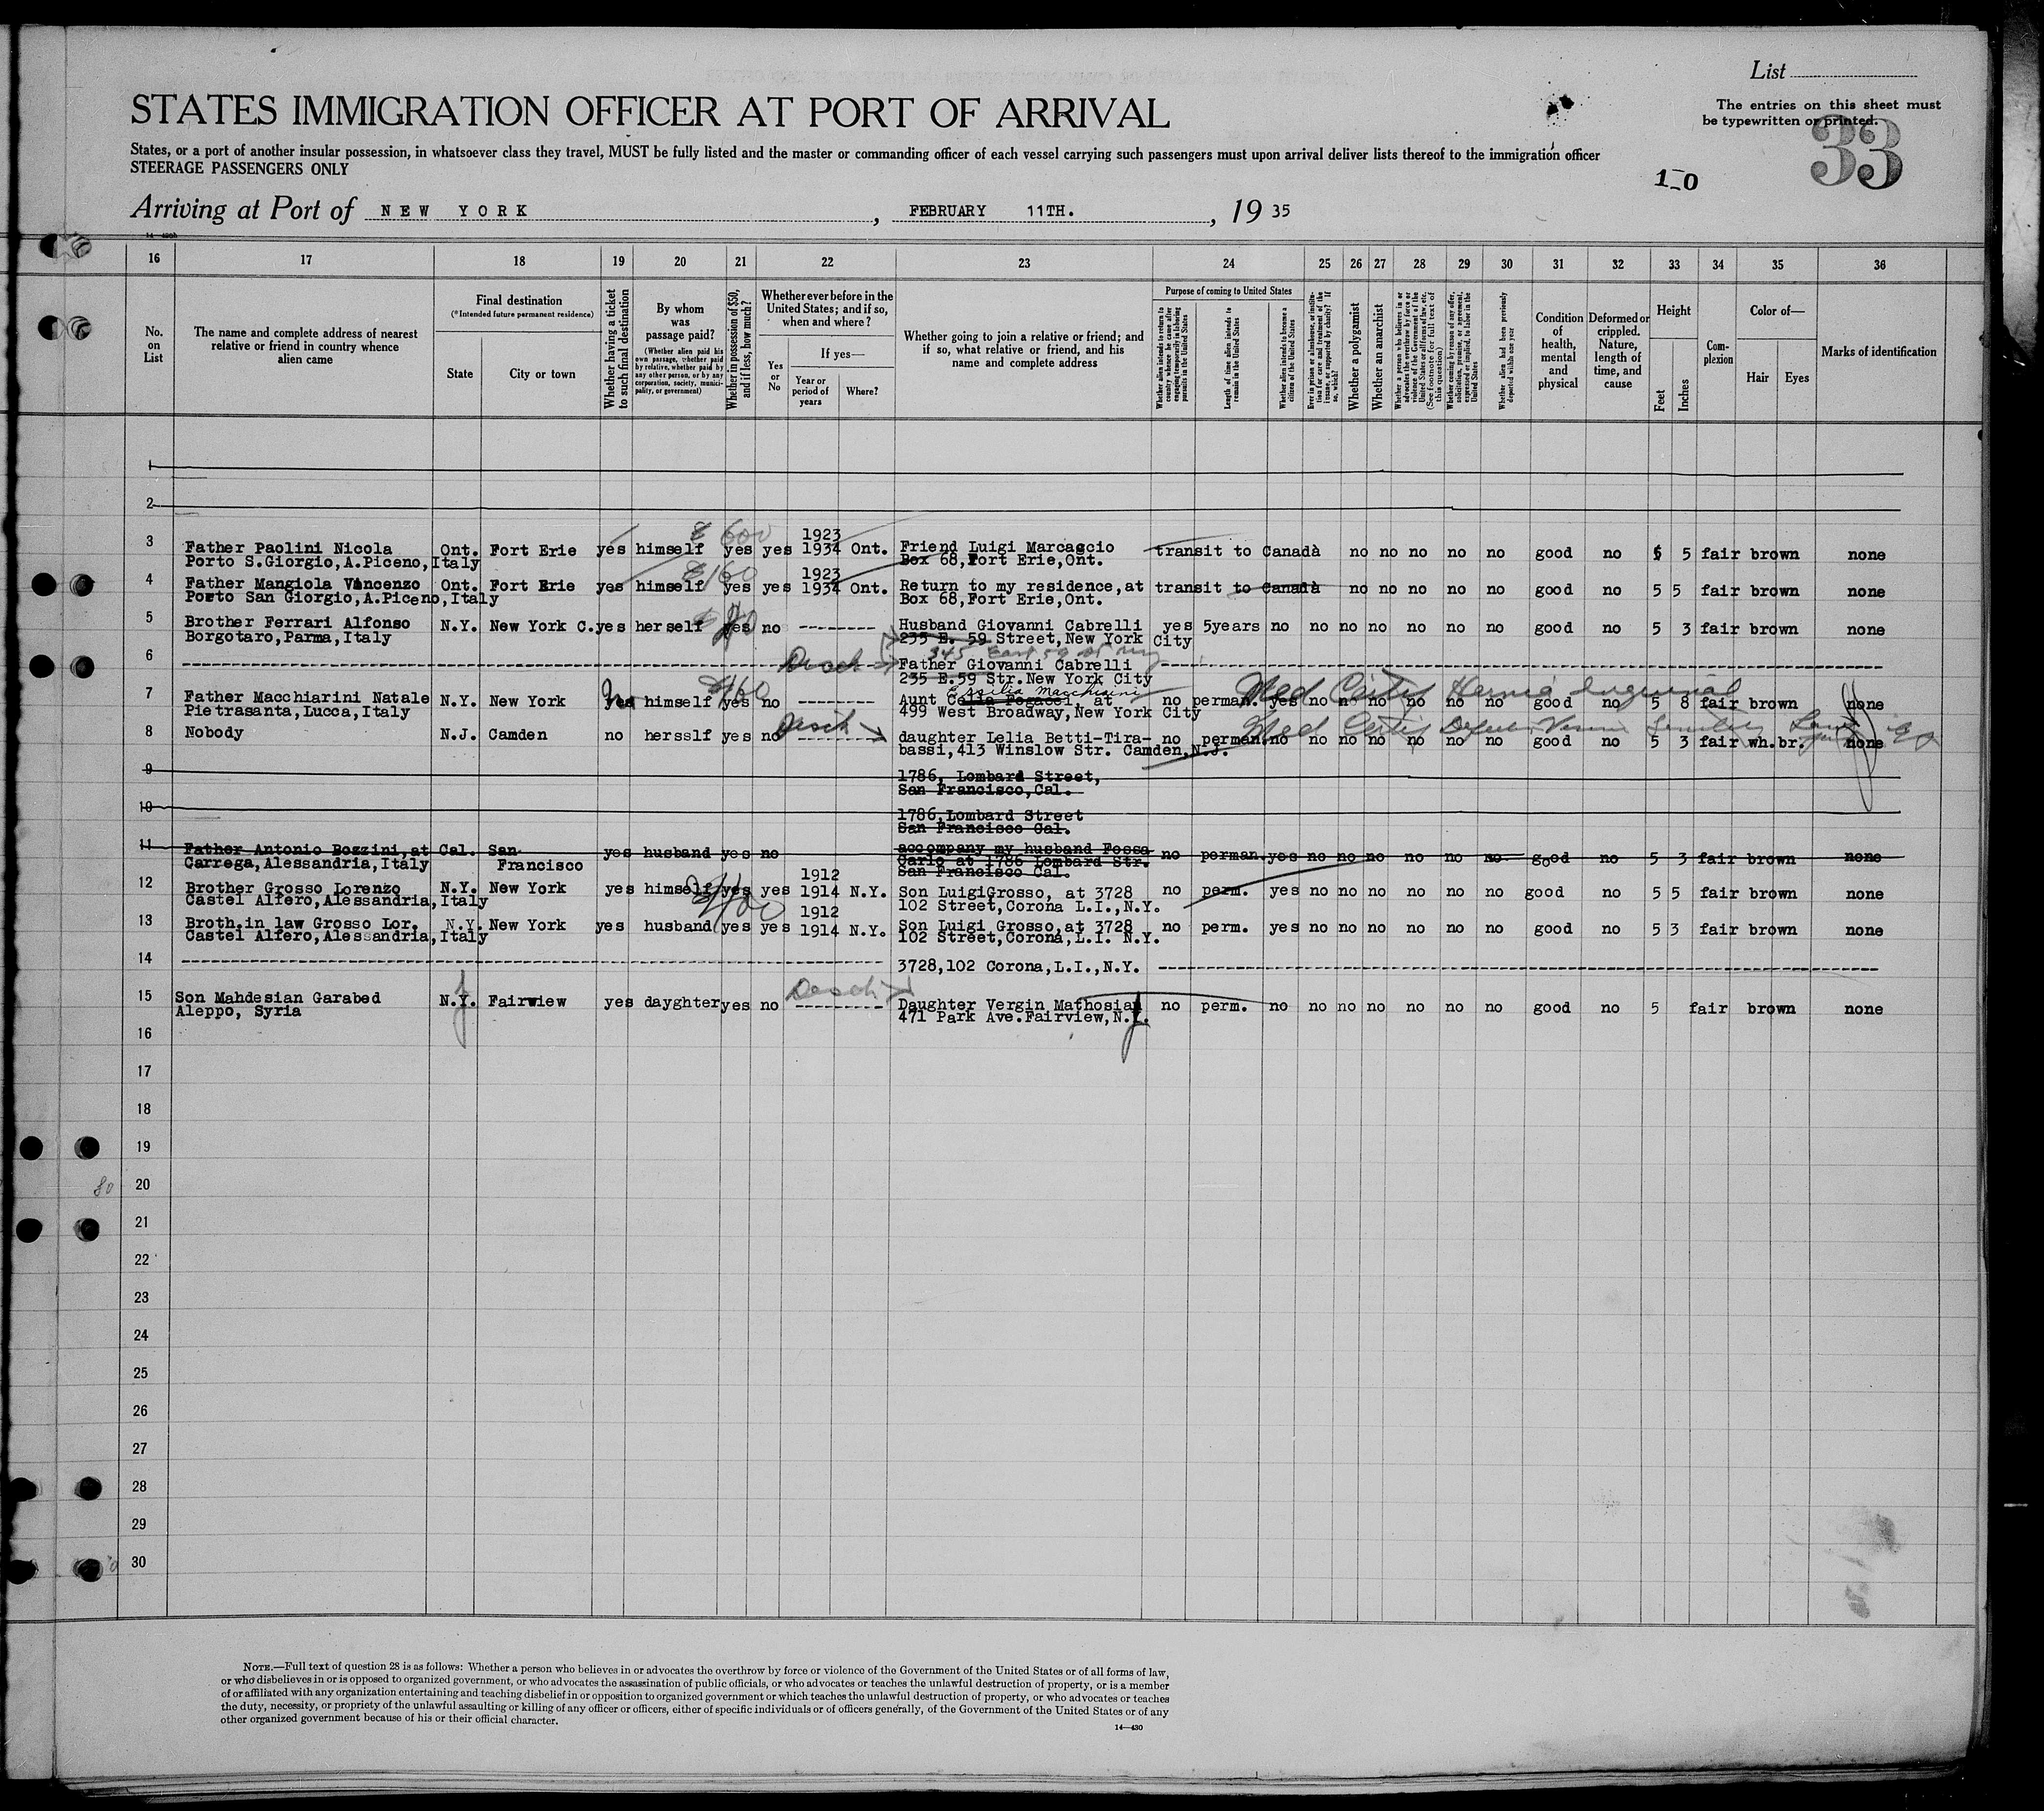 List
The entries on this sheet must
be typewritten or printed.
33
STATES IMMIGRATION OFFICER AT PORT OF ARRIVAL
States, or a port of another insular possession, in whatsoever class they travel, MUST be fully listed and the master or commanding officer of each vessel carrying such passengers must upon arrival deliver lists thereof to the immigration officer
STEERAGE PASSENGERS ONLY
1-0
Arriving at Port of NEW YORK, FEBRUARY 11TH., 19 35
16 17 18 19 20 21 22 23 24 25 26 27 28 29 30 31 32 33 34 35 36
No. on List
The name and complete address of nearest relative or friend in country whence alien came
Final destination
(*Intended future permanent residence)
State
City or town
Whether having a ticket to such final destination
By whom was passage paid?
(Whether alien paid his own passage, whether paid by relative, whether paid by any other person, or by any corporation, society, municipality, or government)
Whether in possession of $50, and if less, how much?
Whether ever before in the United States; and if so, when and where?
Yes or No
If yes—
Year or period of years
Where?
Whether going to join a relative or friend; and if so, what relative or friend, and his name and complete address
Purpose of coming to United States
Whether alien intends to return to country whence he came after engaging temporarily in laboring pursuits in the United States
Length of time alien intends to remain in the United States
Whether alien intends to become a citizen of the United States
Ever in prison or almshouse, or institution for care and treatment of the insane, or supported by charity? If so, which?
Whether a polygamist
Whether an anarchist
Whether a person who believes in or advocates the overthrow by force or violence of the Government of the United States or all forms of law, etc. (See footnote for full text of this question)
Whether coming by reason of any offer, solicitation, promise, or agreement, expressed or implied, to labor in the United States
Whether alien had been previously deported within one year
Condition of health, mental and physical
Deformed or crippled. Nature, length of time, and cause
Height
Feet
Inches
Complexion
Color of—
Hair
Eyes
Marks of identification
1
2
3 Father Paolini Nicola Ont. Fort Erie yes himself $600 yes yes 1923 1934 Ont. Friend Luigi Marcascio transit to Canadà no no no no no good no 5 5 fair brown none
Porto S.Giorgio,A.Piceno,Italy Box 68,Fort Erie,Ont.
4 Father Mangiola Vincenzo Ont. Fort Erie yes himself $160 yes yes 1923 1934 Ont. Return to my residence,at transit to Canadà no no no no no good no 5 5 fair brown none
Porto San Giorgio,A.Piceno,Italy Box 68,Fort Erie,Ont.
5 Brother Ferrari Alfonso N.Y. New York C. yes herself yes no -------- Husband Giovanni Cabrelli yes 5years no no no no no no no good no 5 3 fair brown none
Borgotaro,Parma,Italy 235 E. 59 Street,New York City
345 East 59 St
6 Father Giovanni Cabrelli
235 E.59 Str.New York City
7 Father Macchiarini Natale N.Y. New York yes no himself $160 yes no -------- Aunt Celia Fogacci, at no perman. yes no no no no no no good no 5 8 fair brown none
Ersilia Macchiarini
Med Certif Hernia Inguinal
Pietrasanta,Lucca,Italy 499 West Broadway,New York City
8 Nobody N.J. Camden no hersslf yes no -------- daughter Lelia Betti-Tira- no perman. no no no no no no no good no 5 3 fair wh.br. none
bassi,413 Winslow Str. Camden,N.J.
Med Certif
9 1786, Lombard Street,
San Francisco,Cal.
10 1786,Lombard Street
San Francisco Cal.
11 Father Antonio Bozzini,at Cal. San Francisco yes husband yes no accompany my husband Fossa no perman. yes no no no no no no good no 5 3 fair brown none
Carrega,Alessandria,Italy Carlo at 1786 Lombard Str.
San Francisco Cal.
12 Brother Grosso Lorenzo N.Y. New York yes himself yes yes 1912 1914 N.Y. Son LuigiGrosso, at 3728 no perm. yes no no no no no no good no 5 5 fair brown none
Castel Alfero,Alessandria,Italy 102 Street,Corona L.I.,N.Y.
13 Broth.in law Grosso Lor. N.Y. New York yes husband yes yes 1912 1914 N.Y. Son Luigi Grosso,at 3728 no perm. yes no no no no no no good no 5 3 fair brown none
Castel Alfero,Alessandria,Italy 102 Street,Corona,L.I. N.Y.
14 3728,102 Corona,L.I.,N.Y.
15 Son Mahdesian Garabed N.Y. Fairwiew yes dayghter yes no -------- Daughter Vergin Mathosian no perm. no no no no no no no good no 5 fair brown none
Aleppo, Syria 471 Park Ave.Fairview,N.
16
17
18
19
20
21
22
23
24
25
26
27
28
29
30
80
NOTE.—Full text of question 28 is as follows: Whether a person who believes in or advocates the overthrow by force or violence of the Government of the United States or of all forms of law,
or who disbelieves in or is opposed to organized government, or who advocates the assassination of public officials, or who advocates or teaches the unlawful destruction of property, or is a member
of or affiliated with any organization entertaining and teaching disbelief in or opposition to organized government or which teaches the unlawful destruction of property, or who advocates or teaches
the duty, necessity, or propriety of the unlawful assaulting or killing of any officer or officers, either of specific individuals or of officers generally, of the Government of the United States or of any
other organized government because of his or their official character.
14—430